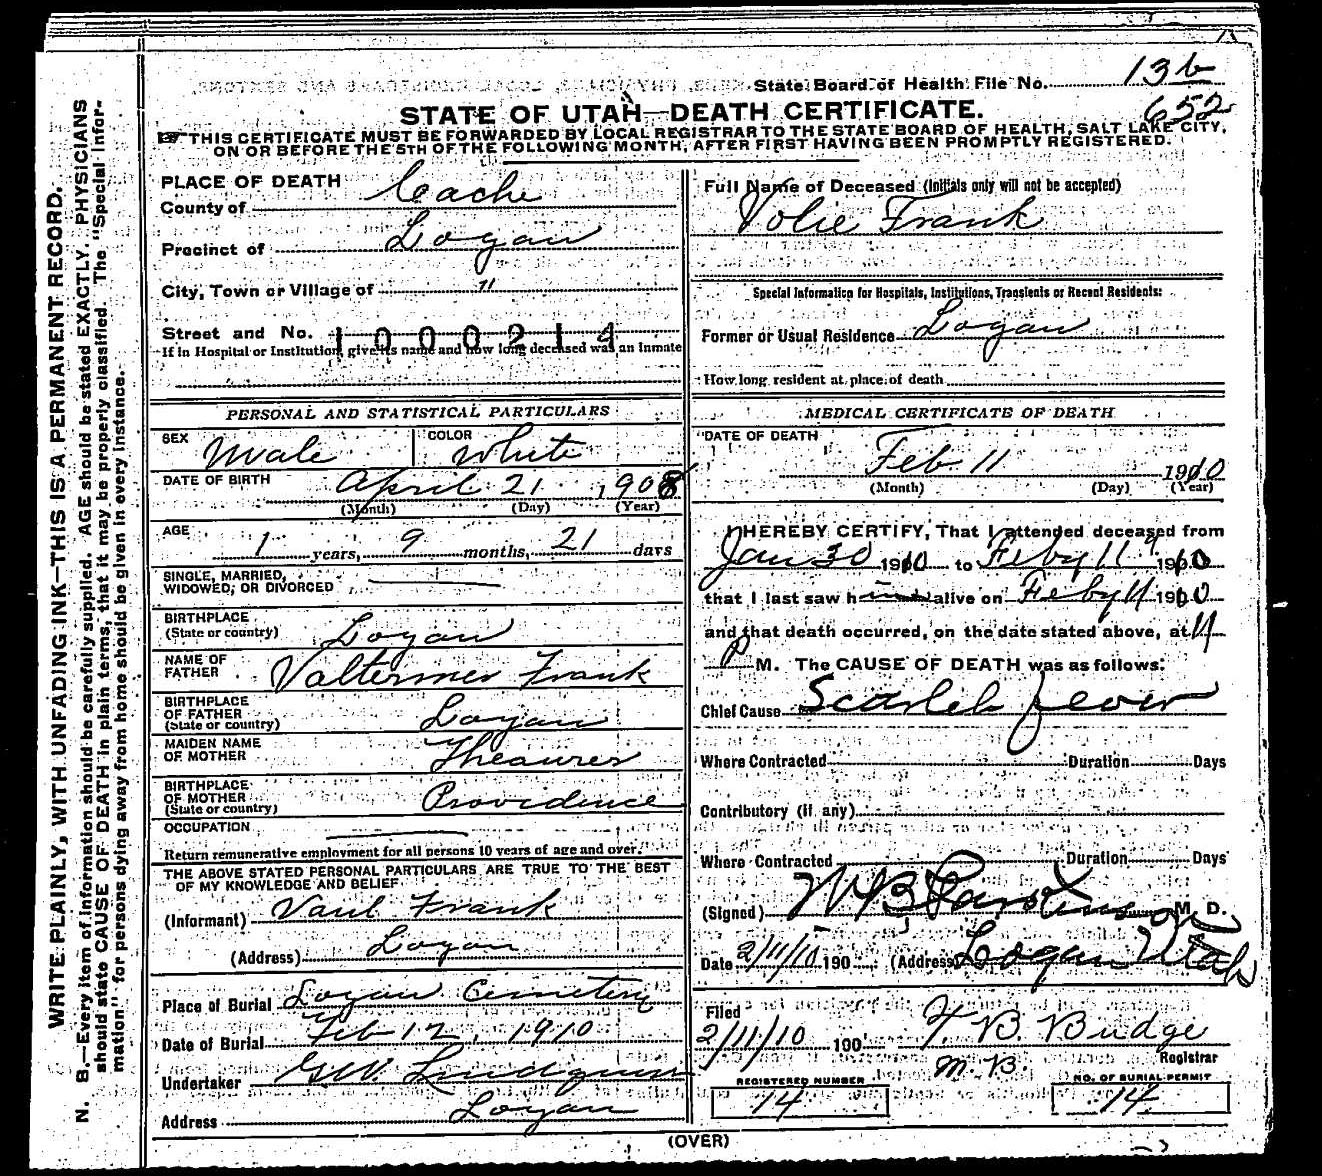 State Board of Health File No. 13b
652
STATE OF UTAH—DEATH CERTIFICATE.
☞ THIS CERTIFICATE MUST BE FORWARDED BY LOCAL REGISTRAR TO THE STATE BOARD OF HEALTH, SALT LAKE CITY,
ON OR BEFORE THE 5TH OF THE FOLLOWING MONTH, AFTER FIRST HAVING BEEN PROMPTLY REGISTERED.
WRITE PLAINLY, WITH UNFADING INK—THIS IS A PERMANENT RECORD.
N. B.—Every item of information should be carefully supplied. AGE should be stated EXACTLY. PHYSICIANS
should state CAUSE OF DEATH in plain terms, that it may be properly classified. The "Special Infor-
mation" for persons dying away from home should be given in every instance.
PLACE OF DEATH
County of Cache
Precinct of Logan
City, Town or Village of "
Street and No. 1000214
If in Hospital or Institution, give its name and how long deceased was an inmate
PERSONAL AND STATISTICAL PARTICULARS
SEX Male COLOR White
DATE OF BIRTH April 21, 1908
(Month) (Day) (Year)
AGE 1 years, 9 months, 21 days
SINGLE, MARRIED,
WIDOWED, OR DIVORCED
BIRTHPLACE
(State or country) Logan
NAME OF
FATHER Frank
BIRTHPLACE
OF FATHER
(State or country) Logan
MAIDEN NAME
OF MOTHER Theaurer
BIRTHPLACE
OF MOTHER
(State or country) Providence
OCCUPATION
Return remunerative employment for all persons 10 years of age and over.
THE ABOVE STATED PERSONAL PARTICULARS ARE TRUE TO THE BEST
OF MY KNOWLEDGE AND BELIEF
(Informant) Frank
(Address) Logan
Place of Burial Logan Cemetery
Date of Burial Feb 12, 1910
Undertaker G.W. Lindquist
Address Logan
Full Name of Deceased (Initials only will not be accepted)
Volie Frank
Special Information for Hospitals, Institutions, Transients or Recent Residents:
Former or Usual Residence Logan
How long resident at place of death
MEDICAL CERTIFICATE OF DEATH
DATE OF DEATH
Feb 11 1910
(Month) (Day) (Year)
I HEREBY CERTIFY, That I attended deceased from
Jan 30 1910 to Feby 11 1910
that I last saw him alive on Feby 11 1910
and that death occurred, on the date stated above, at 11
P M. The CAUSE OF DEATH was as follows:
Chief Cause Scarlet fever
Where Contracted Duration Days
Contributory (if any)
Where Contracted Duration Days
(Signed) W B Parkinson M. D.
Date 2/11/10 190 (Address) Logan Utah
Filed
2/11/10 190 F. B. Budge
M.B. Registrar
REGISTERED NUMBER
14
NO. OF BURIAL PERMIT
14
(OVER)